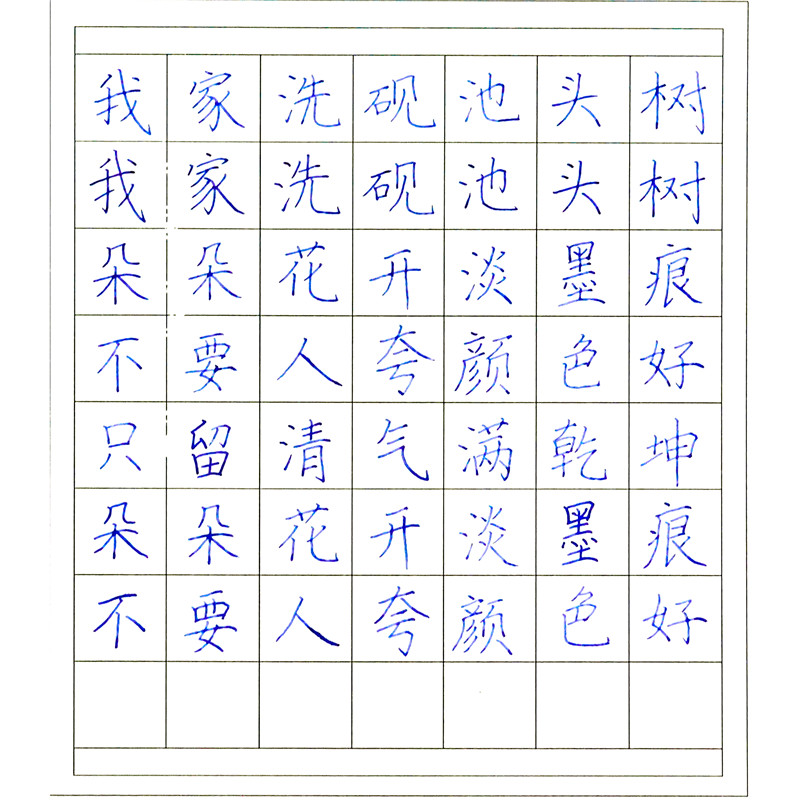 我家洗砚池头树
我家洗砚池头树
朵朵花开淡墨痕
不要人夸颜色好
只留清气满乾坤
朵朵花开淡墨痕
不要人夸颜色好